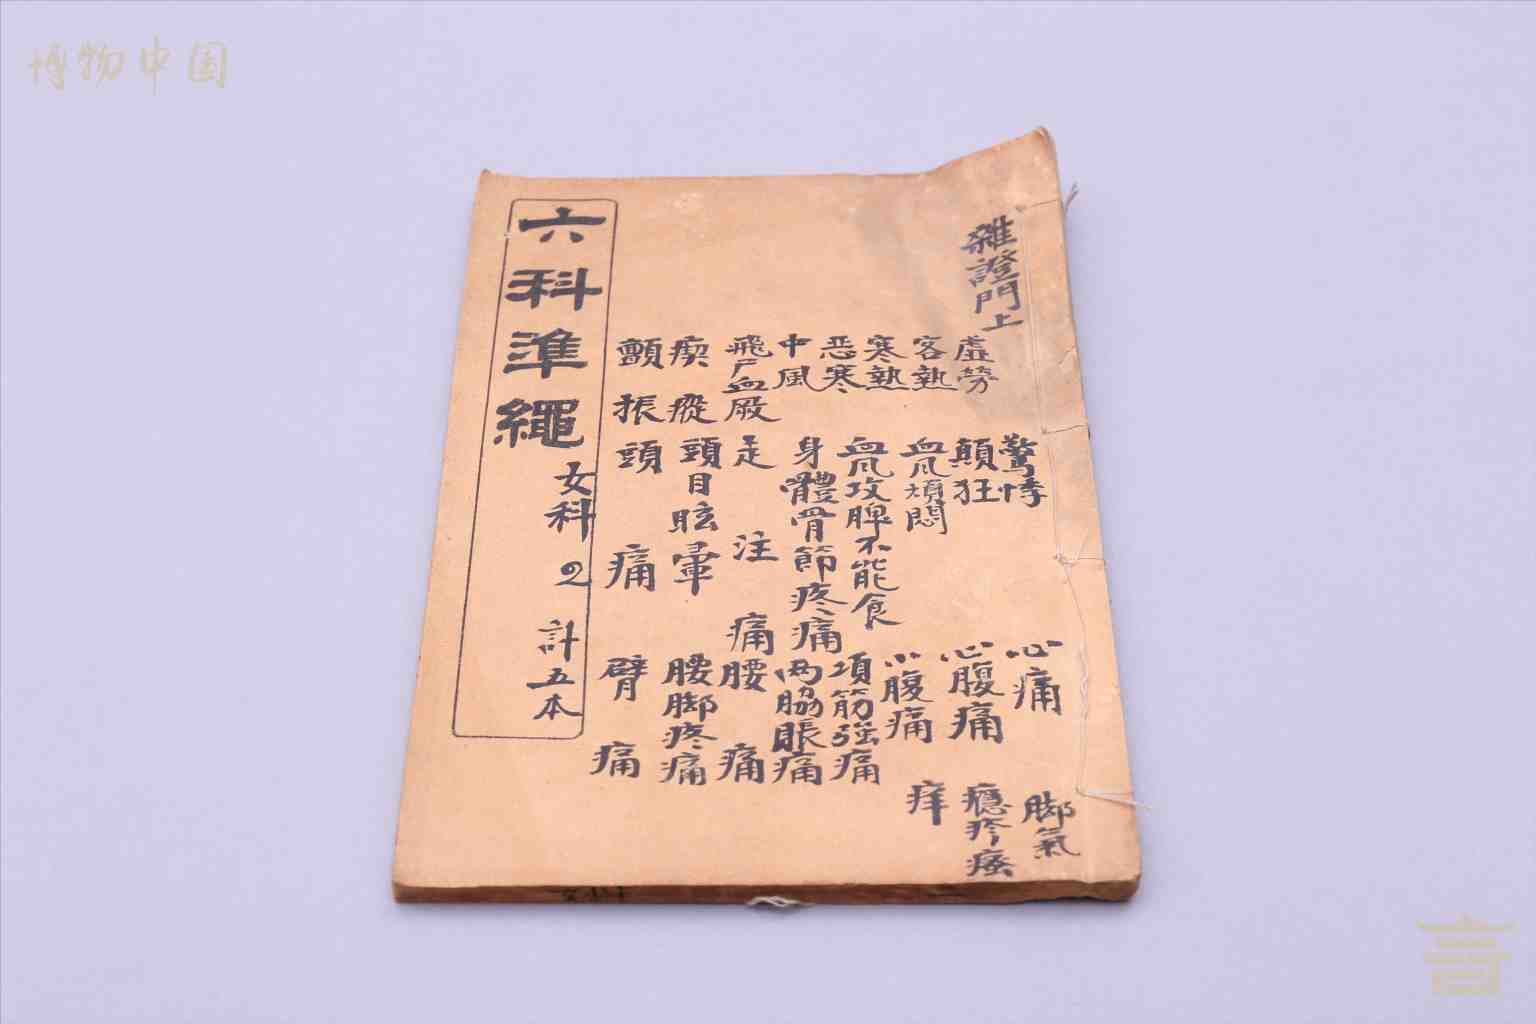 博物中国
雜證門上
虛勞
客熱
寒熱
恶寒
中風
飛尸血厥
瘈瘲
顫振
驚悸
顛狂
血風煩悶
血風攻脾不能食
身體骨節疼痛
走注痛
頭目眩暈
頭痛
心痛
心腹痛
小腹痛
項筋强痛
两脇脹痛
腰痛
腰脚疼痛
臂痛
脚氣
癮疹瘙
痒
六科準繩
女科
計五本